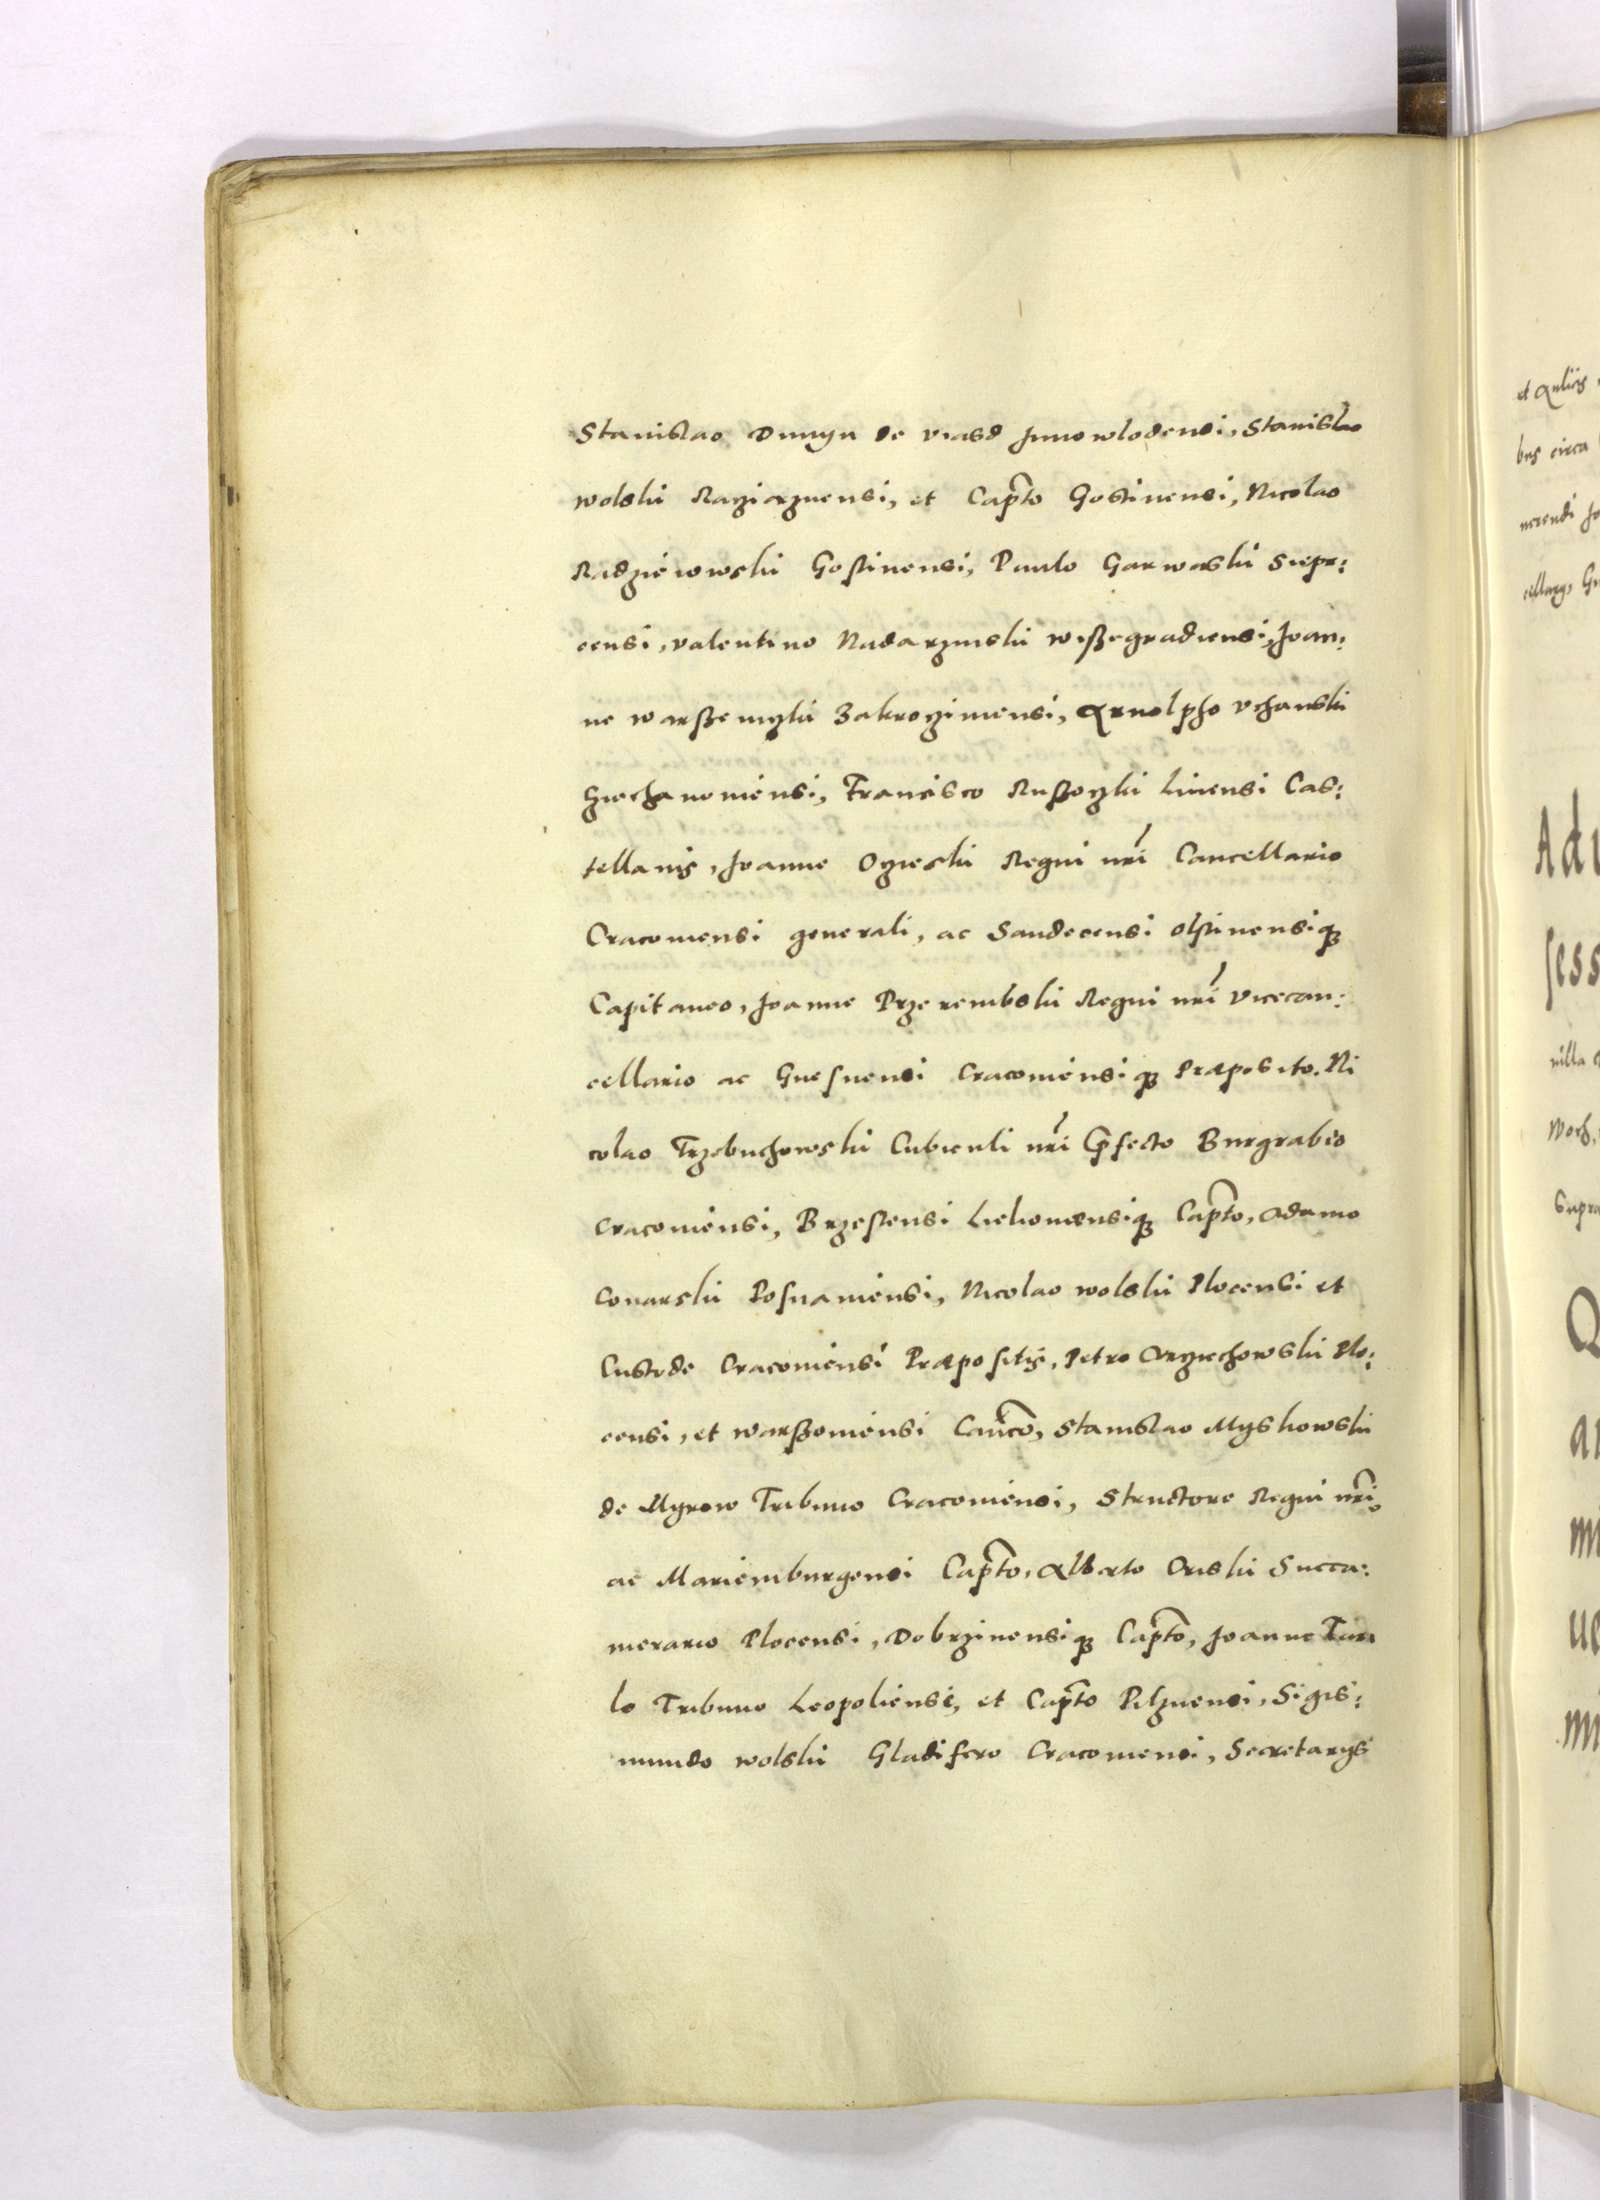 Stanislao Dunyn de viasd Junowlodensi, Stanislao
wolski Raziąznensi, et Capto Gostinensi, Nicolao
Radzieiowski Gostinensi, Paulo Garwaski Siepr:
censi, valentino Nadarzinski wissegradiensi, Joan:
ne warssewyzki Zakroziniensi, Arnolpho vchanski
Cziechanoniensi, Francisco Russoczki Liuensi Cas:
tellanis, Joanne Oczieski Regni nri Cancellario
Cracouiensi generali, ac Sandecensi olstinensiq3
Capitaneo, Joanne Przerembski Regni nri vicecan:
cellario ac Gnesnensi Cracouiensiq3 Præposito. Ni
colao Trzebuchowski Cubiculi nri Pfecto Burgrabio
Cracouiensi, Brzestensi Lelouiensiq3 Capto, Adamo
Conarski Posnaniensi, Nicolao wolski Plocensi et
Custode Cracouiensi Præpositis, Petro Orziechowski Plo:
censi, et warssouiensi Canco, Stanislao Myskowski
de Myrow Tribuno Cracouiensi, Structore Regni nri,
ac Mariemburgensi Capto, Alberto Criski Succa:
merario Plocensi, Dobrzinensiq3 Capto, Joanne Tar
lo Tribuno Leopoliensi, et Capto Pilznensi, Sigis:
mundo wolski Gladifero Cracouiensi, Secretarys
et Aulicis
bus circa
nerendi
Adu
sess
nilla
Woch,
Supra
Q